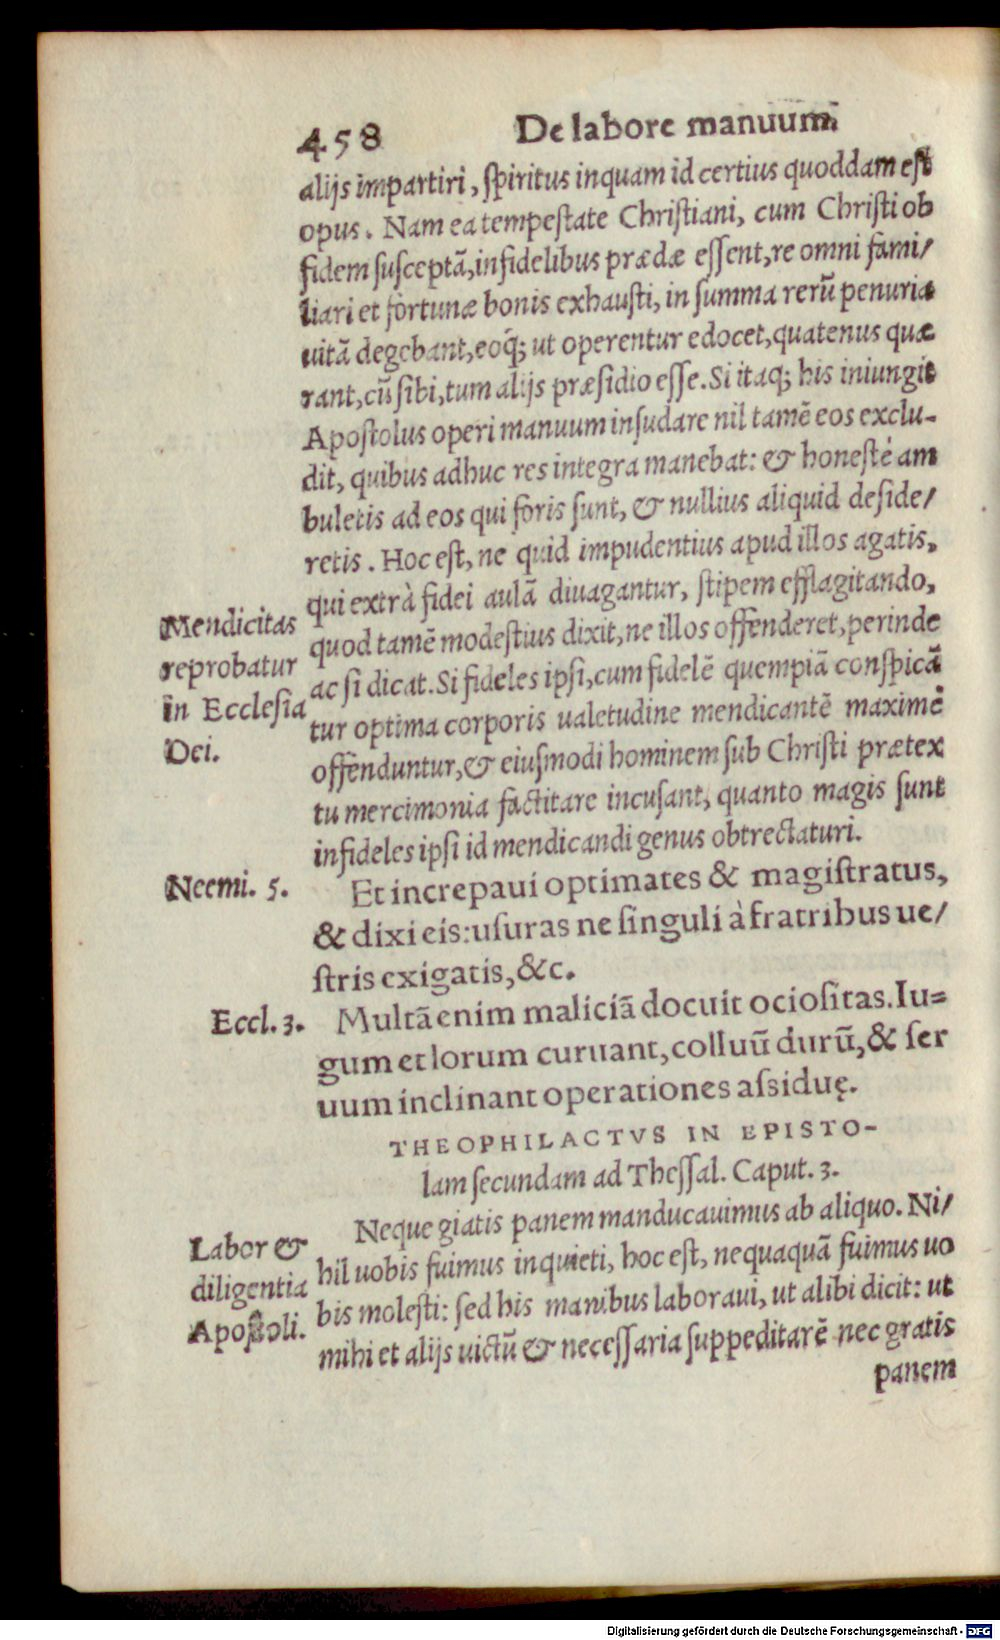 458 De labore manuum.
alijs impartiri, ſpiritus inquam id certius quoddam eſt
opus. Nam ea tempeſtate Chriſtiani, cum Chriſti ob
fidem ſuſceptā, infidelibus prædæ eſſent, re omni fami/
liari et fortunæ bonis exhauſti, in ſumma rerū penuria
uitā degebant, eoq́; ut operentur edocet, quatenus quæ
rant, cū ſibi, tum alijs præſidio eſſe. Si itaq; his iniungit
Apoſtolus operi manuum inſudare nil tamē eos exclu-
dit, quibus adhuc res integra manebat: & honeſtè am
buletis ad eos qui foris ſunt, & nullius aliquid deſide/
retis. Hoc eſt, ne quid impudentius apud illos agatis,
qui extrà fidei aulā diuagantur, ſtipem efflagitando,
Mendicitas
reprobatur
in Ecclesia
Dei.
quod tamē modeſtius dixit, ne illos offenderet, perinde
ac ſi dicat. Si fideles ipſi, cum fidelē quempiā conſpicā
tur optima corporis ualetudine mendicantē maximè
offenduntur, & eiuſmodi hominem ſub Chriſti prætex
tu mercimonia factitare incuſant, quanto magis ſunt
infideles ipſi id mendicandi genus obtrectaturi.
Neemi. 5.
Et increpaui optimates & magiſtratus,
& dixi eis: uſuras ne ſinguli à fratribus ue/
ſtris exigatis, &c.
Eccl. 3.
Multā enim maliciā docuit ocioſitas. Iu=
gum et lorum curuant, colluū durū, & ſer
uum inclinant operationes aſsiduę.
THEOPHILACTVS IN EPISTO-
lam ſecundam ad Theſſal. Caput. 3.
Neque giatis panem manducauimus ab aliquo. Ni/
Labor &
diligentia
Apoſtoli.
hil uobis fuimus inquieti, hoc eſt, nequaquā fuimus uo
bis moleſti: ſed his manibus laboraui, ut alibi dicit: ut
mihi et alijs uictū & neceſſaria ſuppeditarē nec gratis
panem
Digitalisierung gefördert durch die Deutsche Forschungsgemeinschaft - DFG